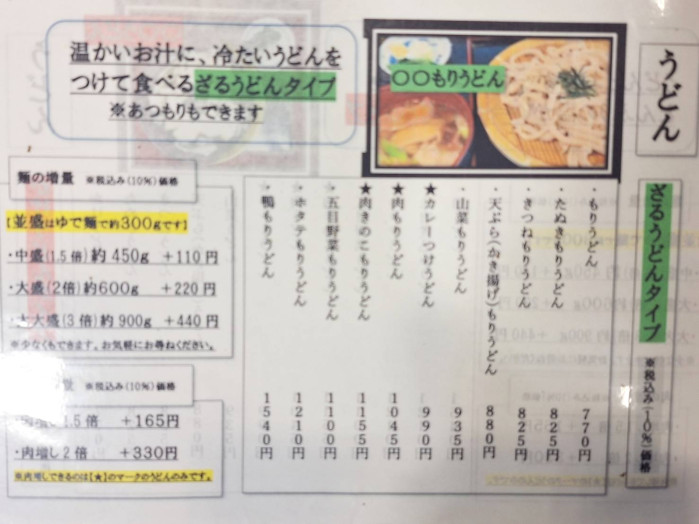 うどん
温かいお汁に、冷たいうどんを
つけて食べるざるうどんタイプ
※あつもりもできます
〇〇もりうどん
ざるうどんタイプ ※税込み(10%)価格
・もりうどん 770円
・たぬきもりうどん 825円
・きつねもりうどん 825円
・天ぷら(かき揚げ)もりうどん 880円
・山菜もりうどん 935円
★カレーつけうどん 990円
★肉もりうどん 1045円
★肉きのこもりうどん 1155円
・五目野菜もりうどん 1100円
・ホタテもりうどん 1210円
・鴨もりうどん 1540円
麺の増量 ※税込み(10%)価格
【並盛はゆで麺で約300gです】
・中盛(1.5倍)約450g +110円
・大盛(2倍)約600g +220円
・大大盛(3倍)約900g +440円
※少なくもできます。お気軽にお尋ねください。
量 ※税込み(10%)価格
・肉増し1.5倍 +165円
・肉増し2倍 +330円
※肉増しできるのは【★】のマークのうどんのみです。